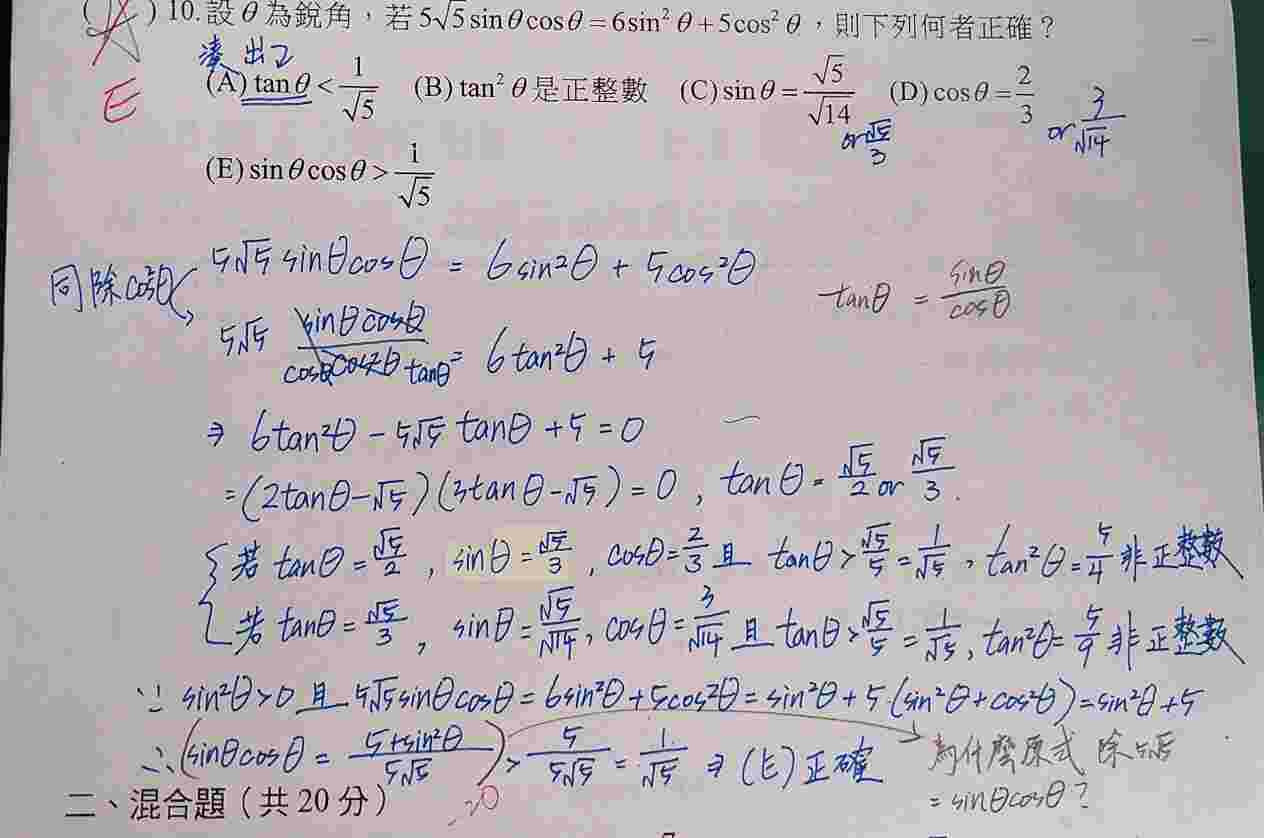 ( ) 10.設θ為銳角，若5√5 sinθcosθ=6sin²θ+5cos²θ，則下列何者正確？
湊出2
E
(A) tanθ < 1/√5 (B) tan²θ是正整數 (C) sinθ = √5/√14 (D) cosθ = 2/3
or √5/3 or 3/√14
(E) sinθcosθ > 1/√5
同除cos²θ 5√5 sinθcosθ = 6sin²θ + 5cos²θ
tanθ = sinθ/cosθ
5√5 sinθcosθ/cosθcos²θ tanθ = 6tan²θ + 5
⇒ 6tan²θ - 5√5 tanθ + 5 = 0
= (2tanθ-√5)(3tanθ-√5) = 0 , tanθ = √5/2 or √5/3.
若 tanθ = √5/2 , sinθ = √5/3 , cosθ = 2/3 且 tanθ > √5/5 = 1/√5 , tan²θ = 5/4 非正整數
若 tanθ = √5/3 , sinθ = √5/√14 , cosθ = 3/√14 且 tanθ > √5/5 = 1/√5 , tan²θ = 5/9 非正整數
∵ sin²θ>0 且 5√5 sinθcosθ = 6sin²θ + 5cos²θ = sin²θ + 5(sin²θ + cos²θ) = sin²θ + 5
∴ (sinθcosθ = 5+sin²θ/5√5) > 5/5√5 = 1/√5 ⇒ (E) 正確
為什麼原式 除5√5
= sinθcosθ ?
二、混合題（共20分）